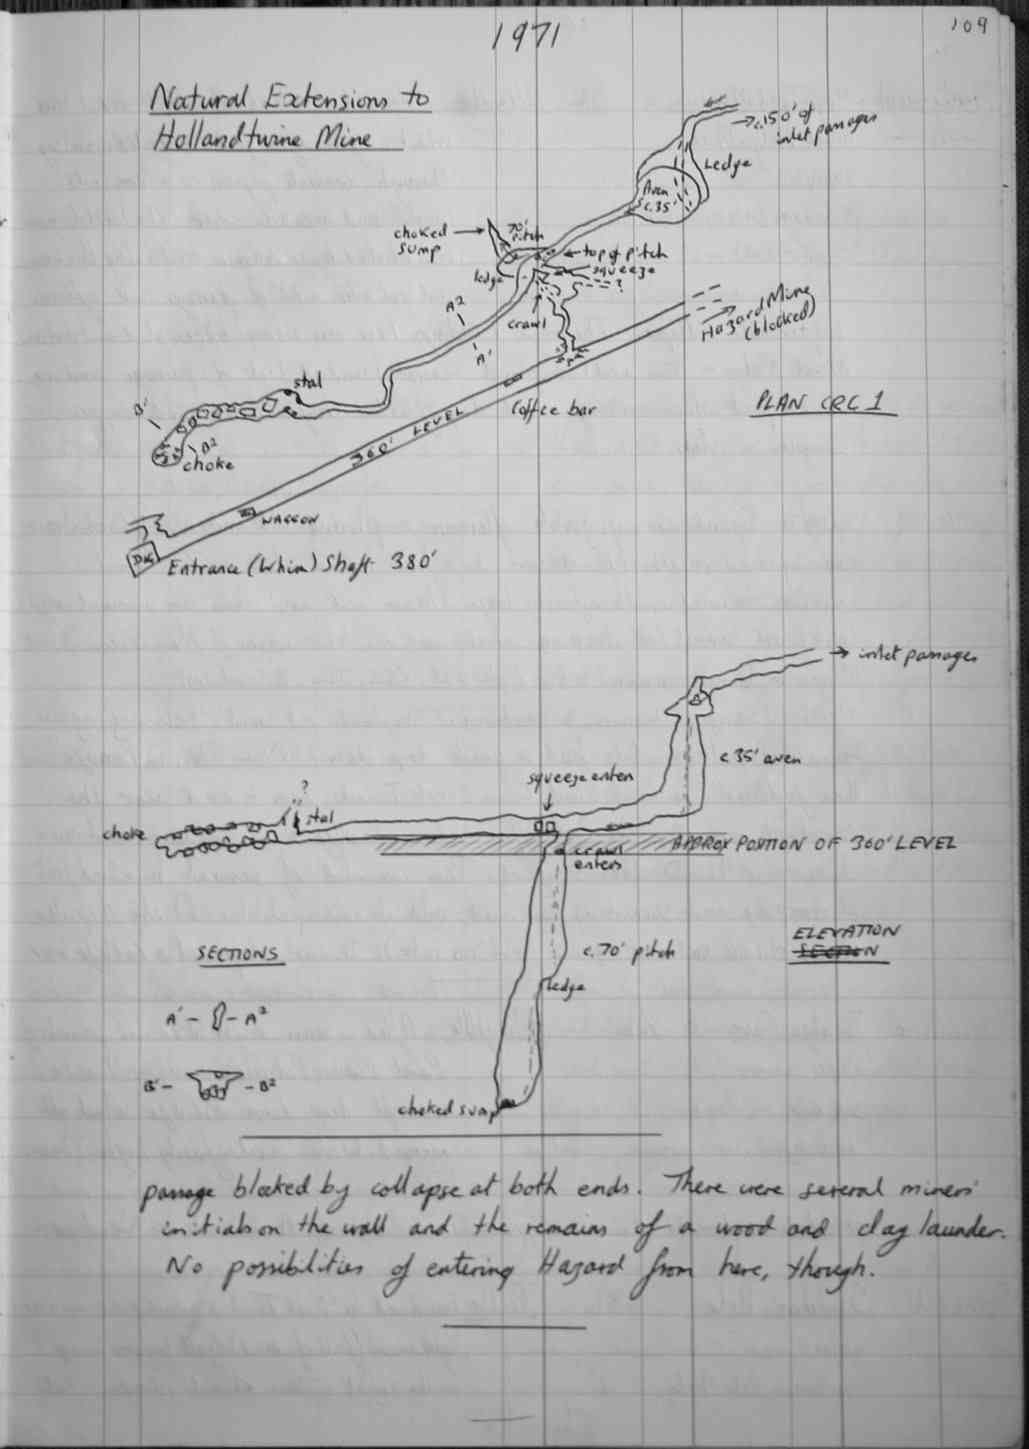 109
1971
Natural Extensions to
Hollandtwine Mine
→ c.150' of
inlet passages
Ledge
Aven
c.35'
choked
sump
70'
pitch
top of pitch
squeeze
ledge
?
crawl
A²
A'
Hazard Mine
(blocked)
stal
B'
B²
choke
Coffee bar
360' LEVEL
PLAN CRG 1
WAGGON
Entrance (Whim) Shaft 380'
→ inlet passages
c.35' aven
squeeze enters
?
stal
choke
crawl
enters
APPROX POSITION OF 360' LEVEL
SECTIONS
c.70' pitch
ELEVATION
SECTION
ledge
A' - - A²
B' - - B²
choked sump
passage blocked by collapse at both ends. There were several miners'
initials on the wall and the remains of a wood and clay launder.
No possibilities of entering Hazard from here, though.